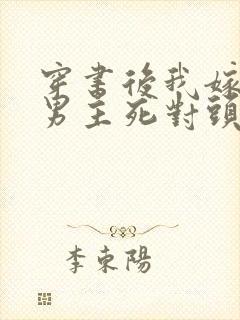 穿書後我嫁
男主死對頭
李東陽